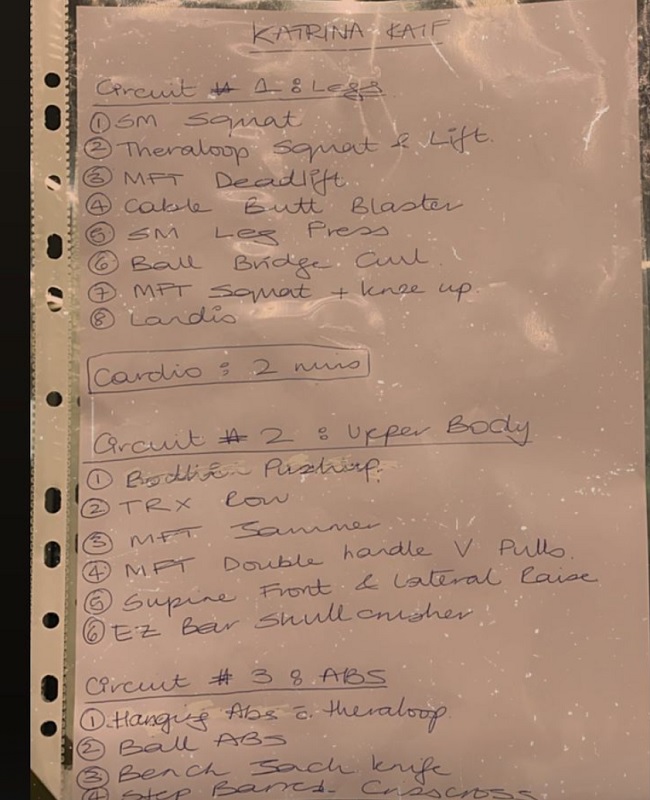 KATRINA KAIF
Circuit # 1 : Legs
① SM Squat
② Theraloop Squat & Lift.
③ MFT Deadlift
④ Cable Butt Blaster
⑤ SM Leg Press
⑥ Ball Bridge Curl.
⑦ MFT Squat + knee up.
⑧ Cardio
Cardio : 2 mins
Circuit # 2 : Upper Body
① Pushup.
② TRX Row
③ MFT Jammer
④ MFT Double handle V Pulls.
⑤ Supine Front & Lateral Raise
⑥ EZ Bar Skull crusher
Circuit # 3 : ABS
① Hanging Abs c̄ theraloop.
② Ball ABS
③ Bench Jack knife
④ Step Crisscross